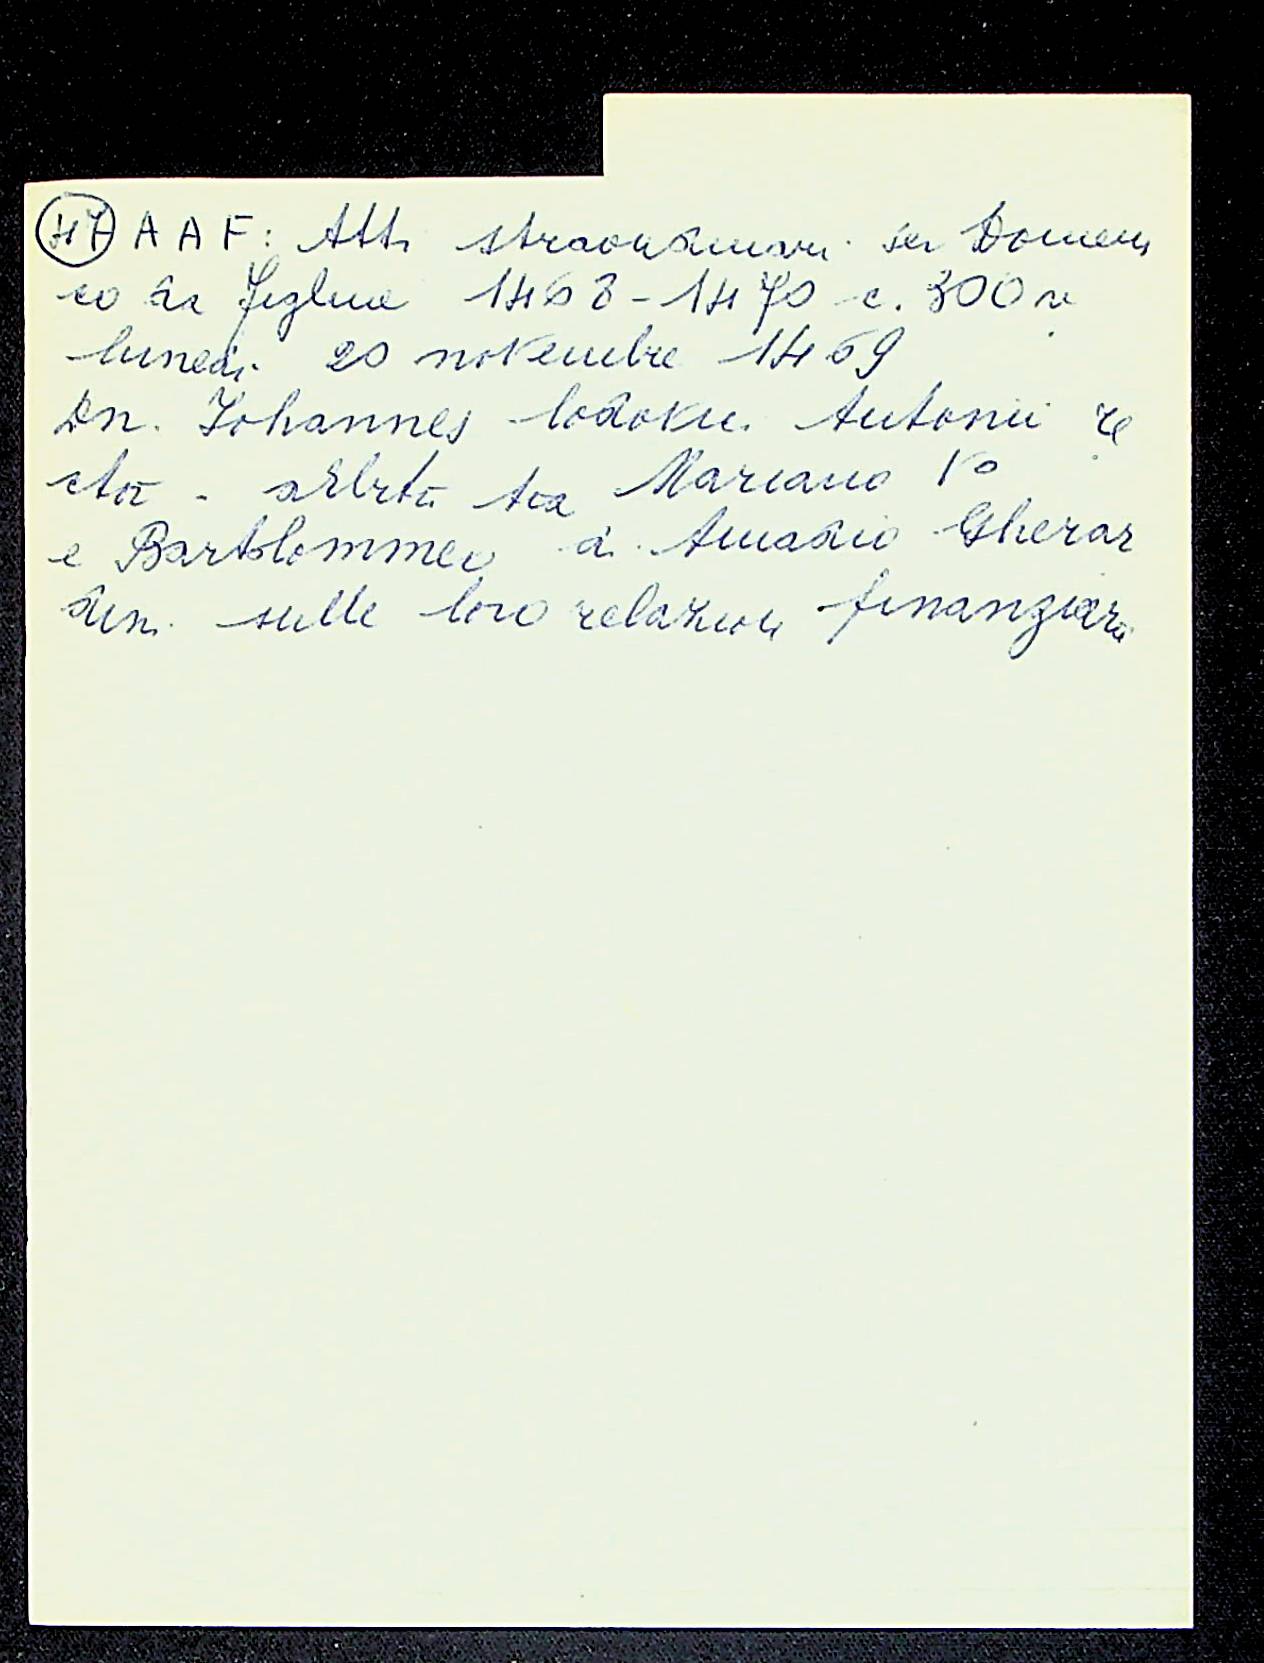 47 A A F: Atti straordinari ser Domeni
co da Figline 1468-1470 c. 300v
lunedì 20 novembre 1469
Dn. Johannes lodovici Antonii re
ctor - arbitr tra Mariano Vo
e Bartolommeo d. Amadio Gherar
dini sulle loro relazioni finanziarie